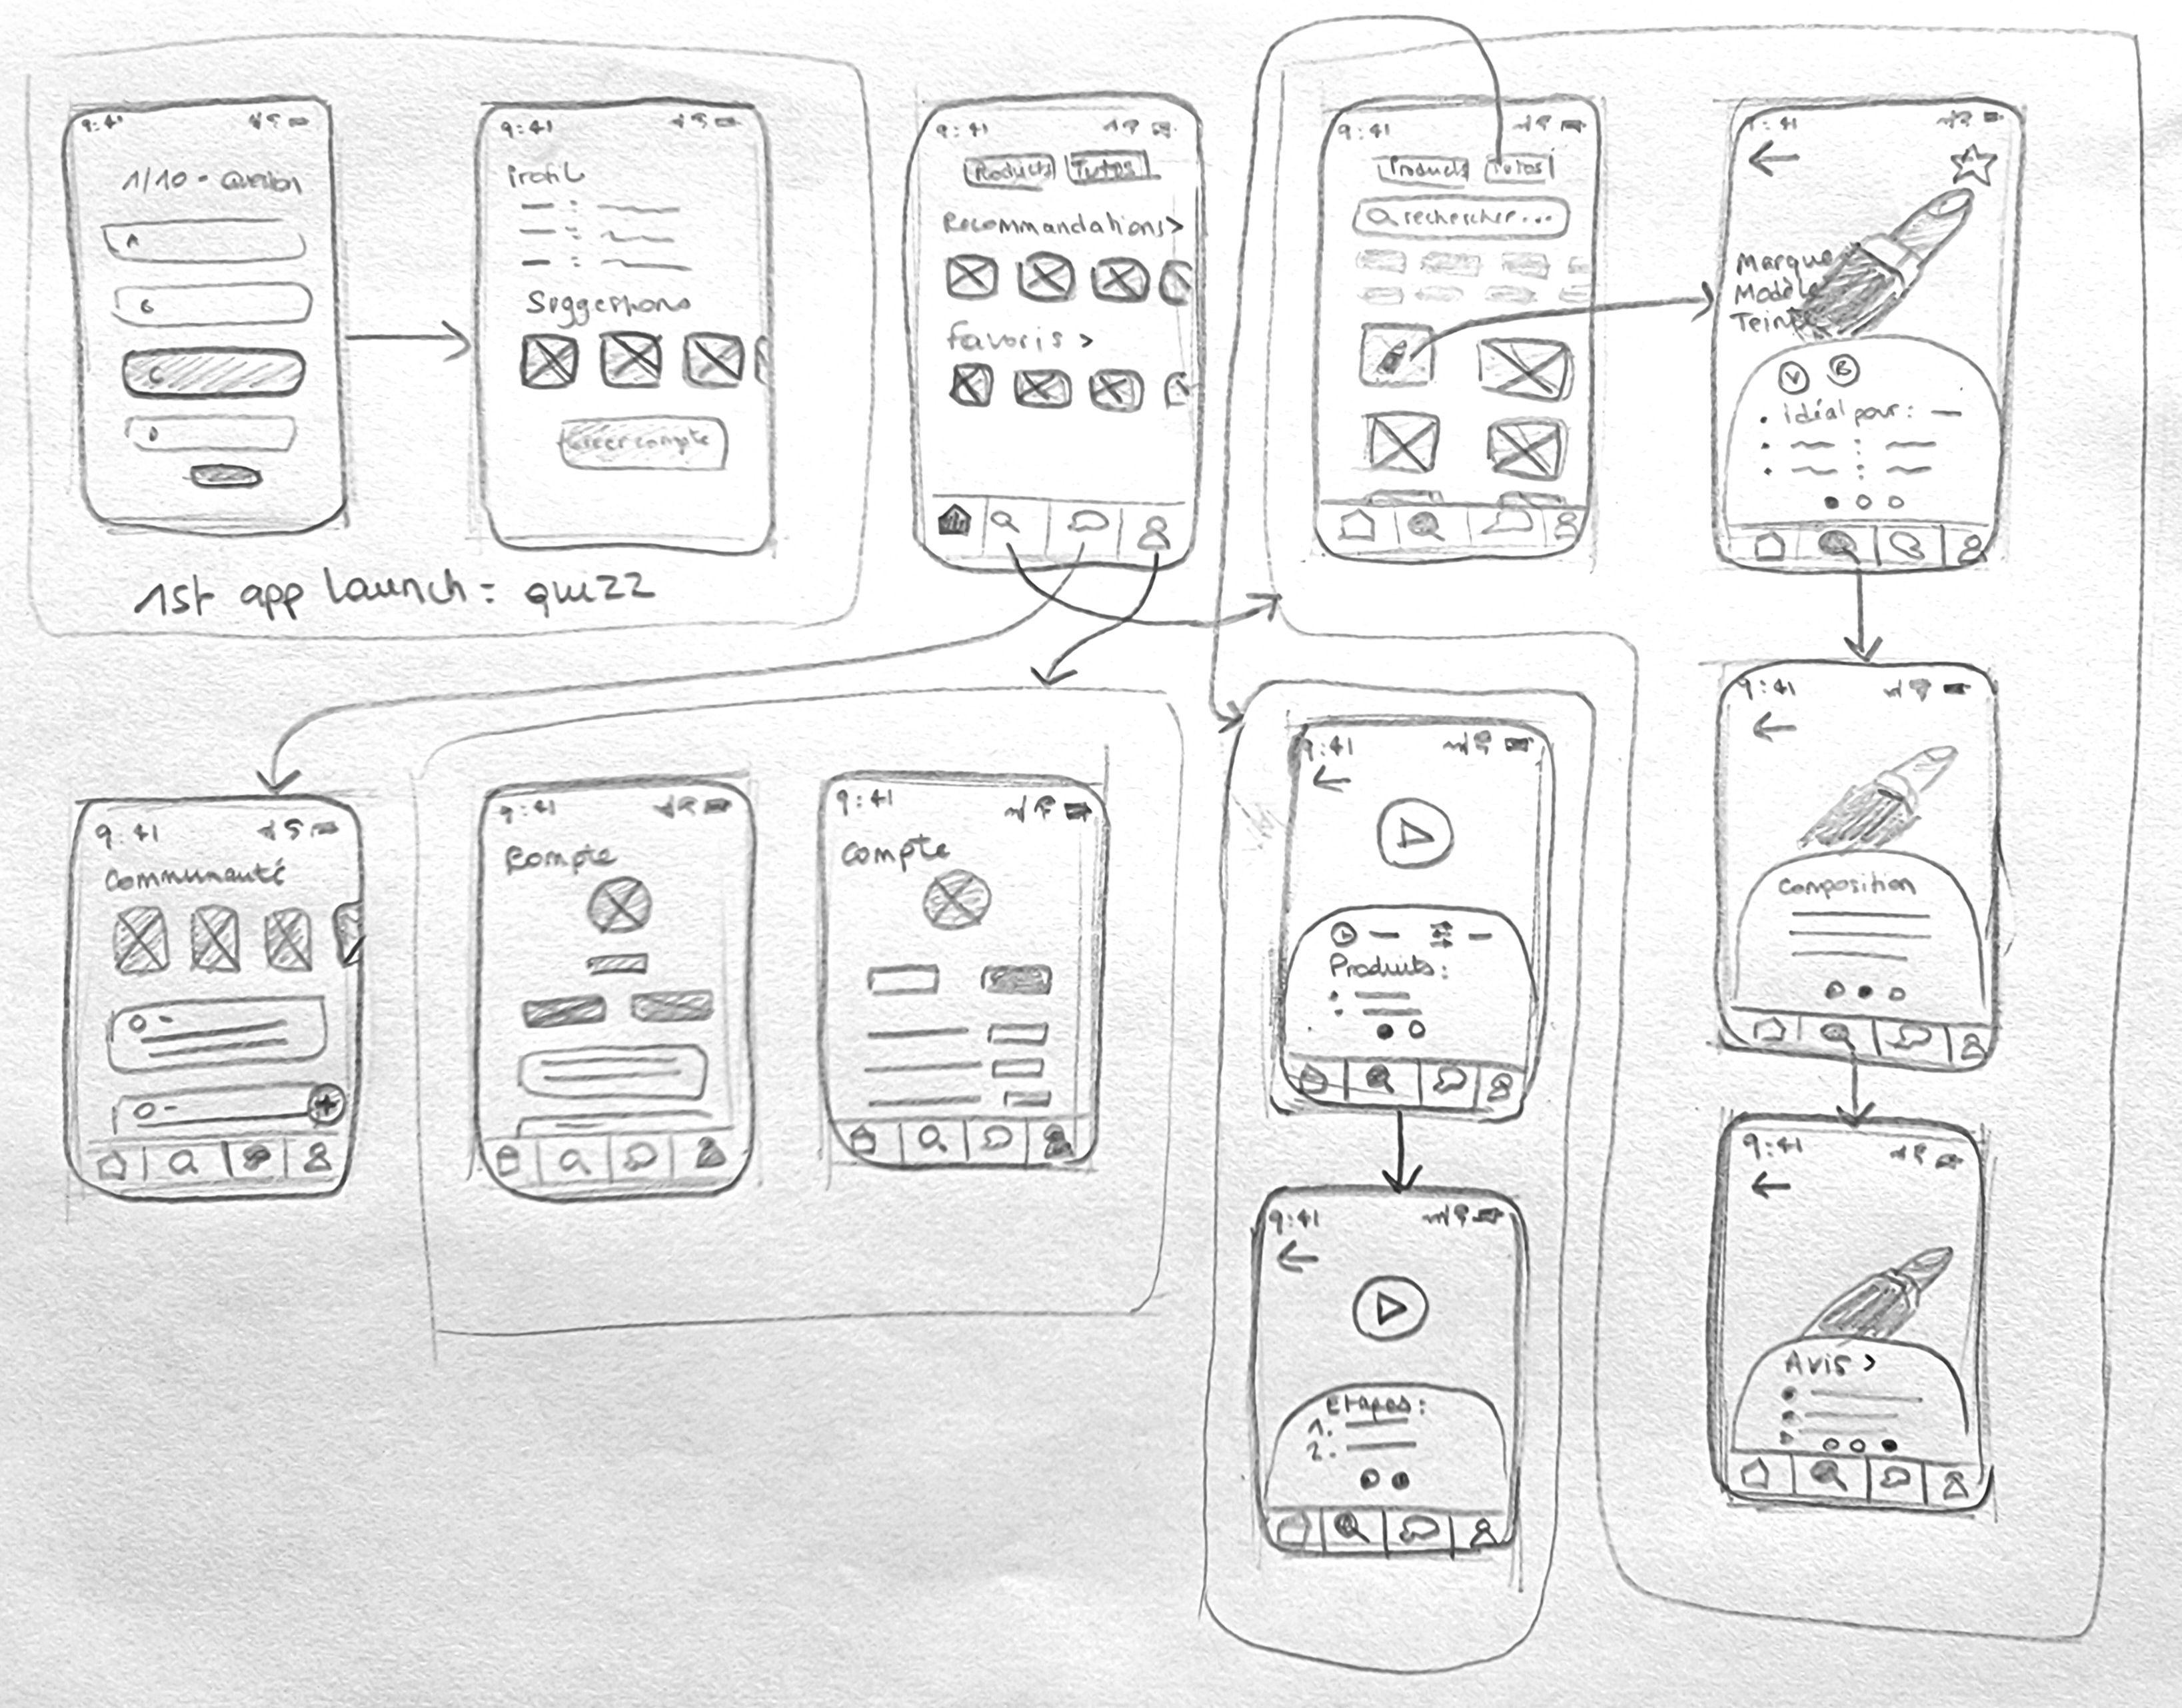 9:41
1/10 - Question
A
B
C
D
9:41
Profil
Suggestions
Créer compte
1st app launch = quizz
9:41
Products Tutos
Recommandations >
favoris >
9:41
Products Tutos
rechercher...
9:41
Marque
Modèle
Teinte
V B
• idéal pour :
9:41
Communauté
9:41
Compte
9:41
Compte
9:41
Produits :
9:41
Etapes :
1.
2.
9:41
Composition
9:41
Avis >